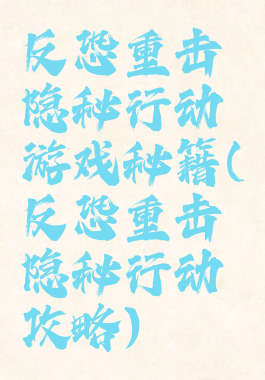 反恐重击
隐秘行动
游戏秘籍(
反恐重击
隐秘行动
攻略)